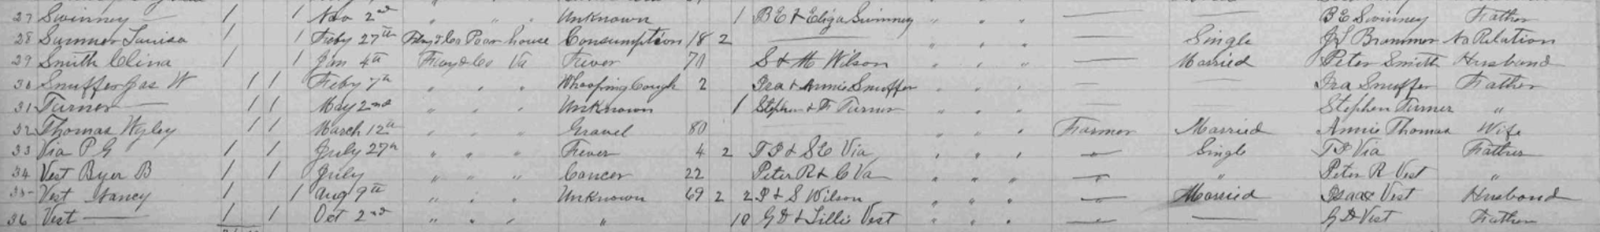 27 Swinney — 1 1 Nov 2nd " " " Unknown 1 B E & Eliza Swinney " " " — — B E Swinney Father
28 Sumner Louisa 1 1 Feby 27th Floyd Co Poor house Consumption 18 2 — " " " — Single J S Brammer No Relation
29 Smith Clina 1 1 Jan 4th Floyd Co Va Fever 70 S & M Wilson " " " — Married Peter Smith Husband
30 Snuffer Gas W 1 1 Feby 7th " " " Whooping Cough 2 Ira & Annie Snuffer " " " — — Ira Snuffer Father
31 Turner — 1 1 May 2nd " " " Unknown 1 Stephen & F Turner " " " — — Stephen Turner "
32 Thomas Wyley 1 1 March 12th " " " Gravel 80 " " " Farmer Married Annie Thomas Wife
33 Via P G 1 1 July 27th " " " Fever 4 2 T I & S E Via " " " — Single T I Via Father
34 Vest Byer B 1 1 July " " " Cancer 22 Peter R & C Va " " " — " Peter R Vest "
35 Vest Nancy 1 1 Aug 9th " " " Unknown 69 2 2 P & S Wilson " " " — Married Isaac Vest Husband
36 Vest — 1 1 Oct 2nd " " " " 10 G D & Lillie Vest " " " — — G D Vest Father